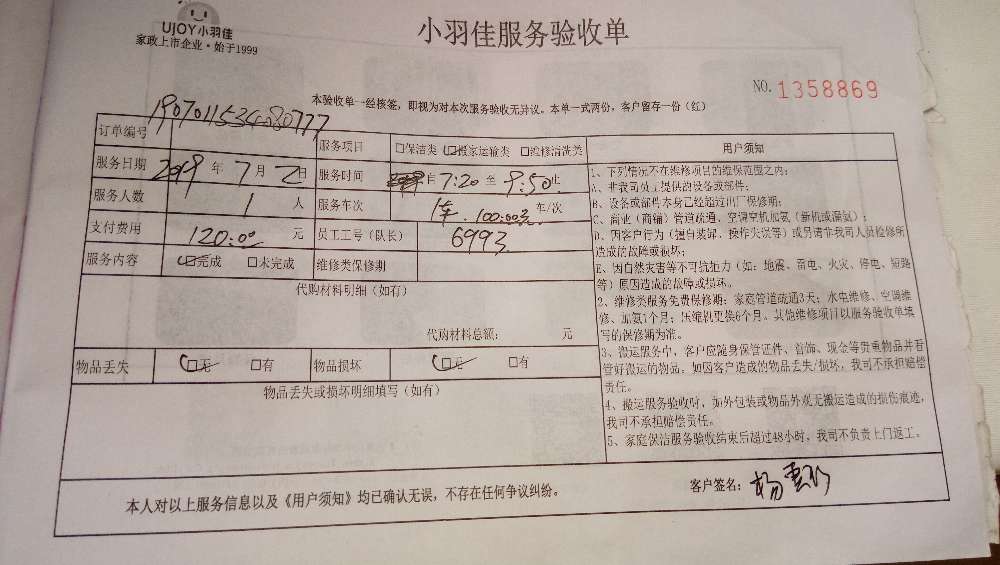 UJOY小羽佳
家政上市企业·始于1999
小羽佳服务验收单
NO. 1358869
本验收单一经核签，即视为对本次服务验收无异议。本单一式两份，客户留存一份（红）
订单编号 1907011534080777
服务项目 □保洁类 ☑搬家运输类 □维修清洗类
服务日期 2019年7月2日
服务时间 自7:20至9:50止
服务人数 1人
服务车次 1车.100.00元 车/次
支付费用 120.00元
员工工号（队长） 6993
服务内容 ☑完成 □未完成
维修类保修期
代购材料明细（如有）
代购材料总额： 元
物品丢失 ☑无 □有
物品损坏 ☑无 □有
物品丢失或损坏明细填写（如有）
用户须知
1、下列情况不在维修项目的维保范围之内：
A、非我司员工提供的设备或部件；
B、设备或部件本身已经超过出厂保修期；
C、商业（商铺）管道疏通、空调空机加氨（新机或漏氨）；
D、因客户行为（擅自装卸、操作失误等）或另请非我司人员检修所
造成的故障或损坏；
E、因自然灾害等不可抗拒力（如：地震、雷电、火灾、停电、短路
等）原因造成的故障或损坏。
2、维修类服务免费保修期：家庭管道疏通3天；水电维修、空调维
修、加氨1个月；压缩机更换6个月。其他维修项目以服务验收单填
写的保修期为准。
3、搬运服务中，客户应随身保管证件、首饰、现金等贵重物品并看
管好搬运的物品，如因客户造成的物品丢失/损坏，我司不承担赔偿
责任。
4、搬运服务验收时，如外包装或物品外观无搬运造成的损伤痕迹，
我司不承担赔偿责任。
5、家庭保洁服务验收结束后超过48小时，我司不负责上门返工。
本人对以上服务信息以及《用户须知》均已确认无误，不存在任何争议纠纷。
客户签名：杨